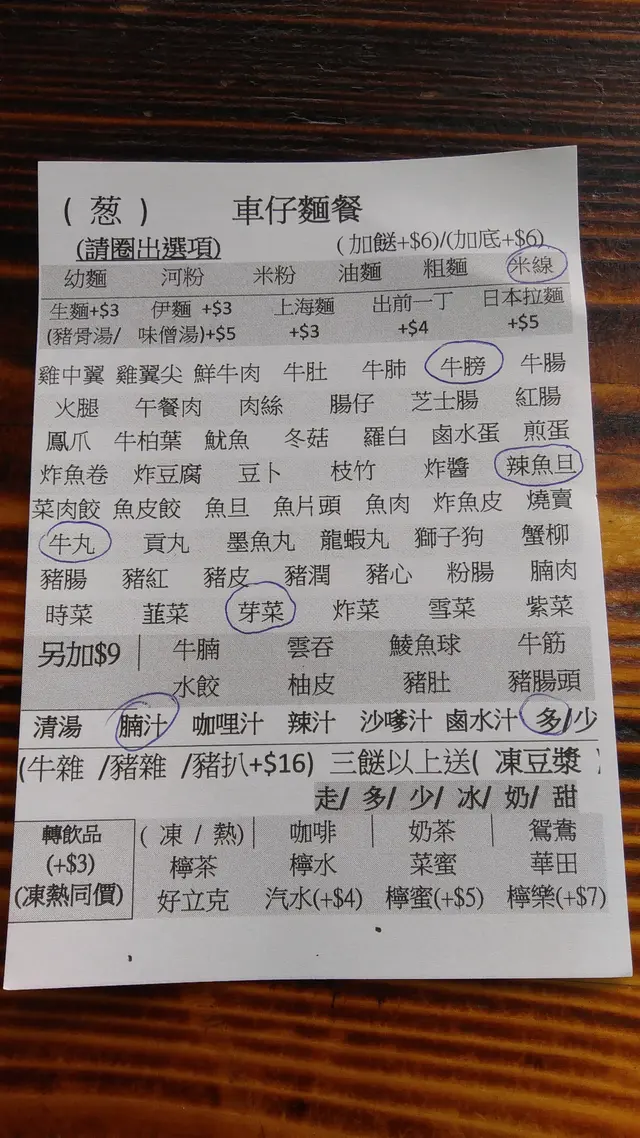 ( 葱 ) 車仔麵餐
(請圈出選項) (加餸+$6)/(加底+$6)
幼麵 河粉 米粉 油麵 粗麵 米線
生麵+$3 伊麵 +$3 上海麵 出前一丁 日本拉麵
(豬骨湯/ 味僧湯)+$5 +$3 +$4 +$5
雞中翼 雞翼尖 鮮牛肉 牛肚 牛肺 牛膀 牛腸
火腿 午餐肉 肉絲 腸仔 芝士腸 紅腸
鳳爪 牛柏葉 魷魚 冬菇 羅白 鹵水蛋 煎蛋
炸魚卷 炸豆腐 豆卜 枝竹 炸醬 辣魚旦
菜肉餃 魚皮餃 魚旦 魚片頭 魚肉 炸魚皮 燒賣
牛丸 貢丸 墨魚丸 龍蝦丸 獅子狗 蟹柳
豬腸 豬紅 豬皮 豬潤 豬心 粉腸 腩肉
時菜 韮菜 芽菜 炸菜 雪菜 紫菜
另加$9 牛腩 雲吞 鯪魚球 牛筋
水餃 柚皮 豬肚 豬腸頭
清湯 腩汁 咖哩汁 辣汁 沙嗲汁 鹵水汁 多/少
(牛雜 /豬雜 /豬扒+$16) 三餸以上送( 凍豆漿 )
走/ 多/ 少/ 冰/ 奶/ 甜
轉飲品 ( 凍 / 熱) 咖啡 奶茶 鴛鴦
(+$3) 檸茶 檸水 菜蜜 華田
(凍熱同價) 好立克 汽水(+$4) 檸蜜(+$5) 檸樂(+$7)